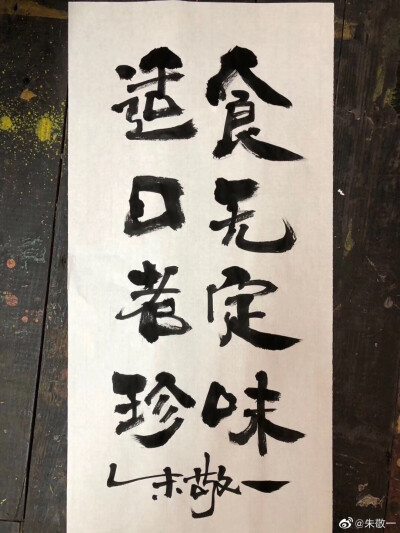 食无定味
适口者珍
朱敬一
@朱敬一